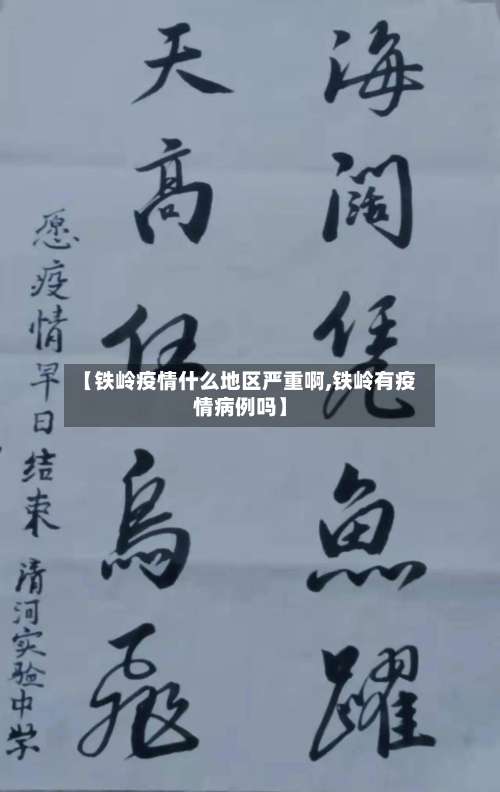 海阔凭魚躍
天高任鳥飛
愿疫情早日结束 清河实验中学
【铁岭疫情什么地区严重啊,铁岭有疫
情病例吗】